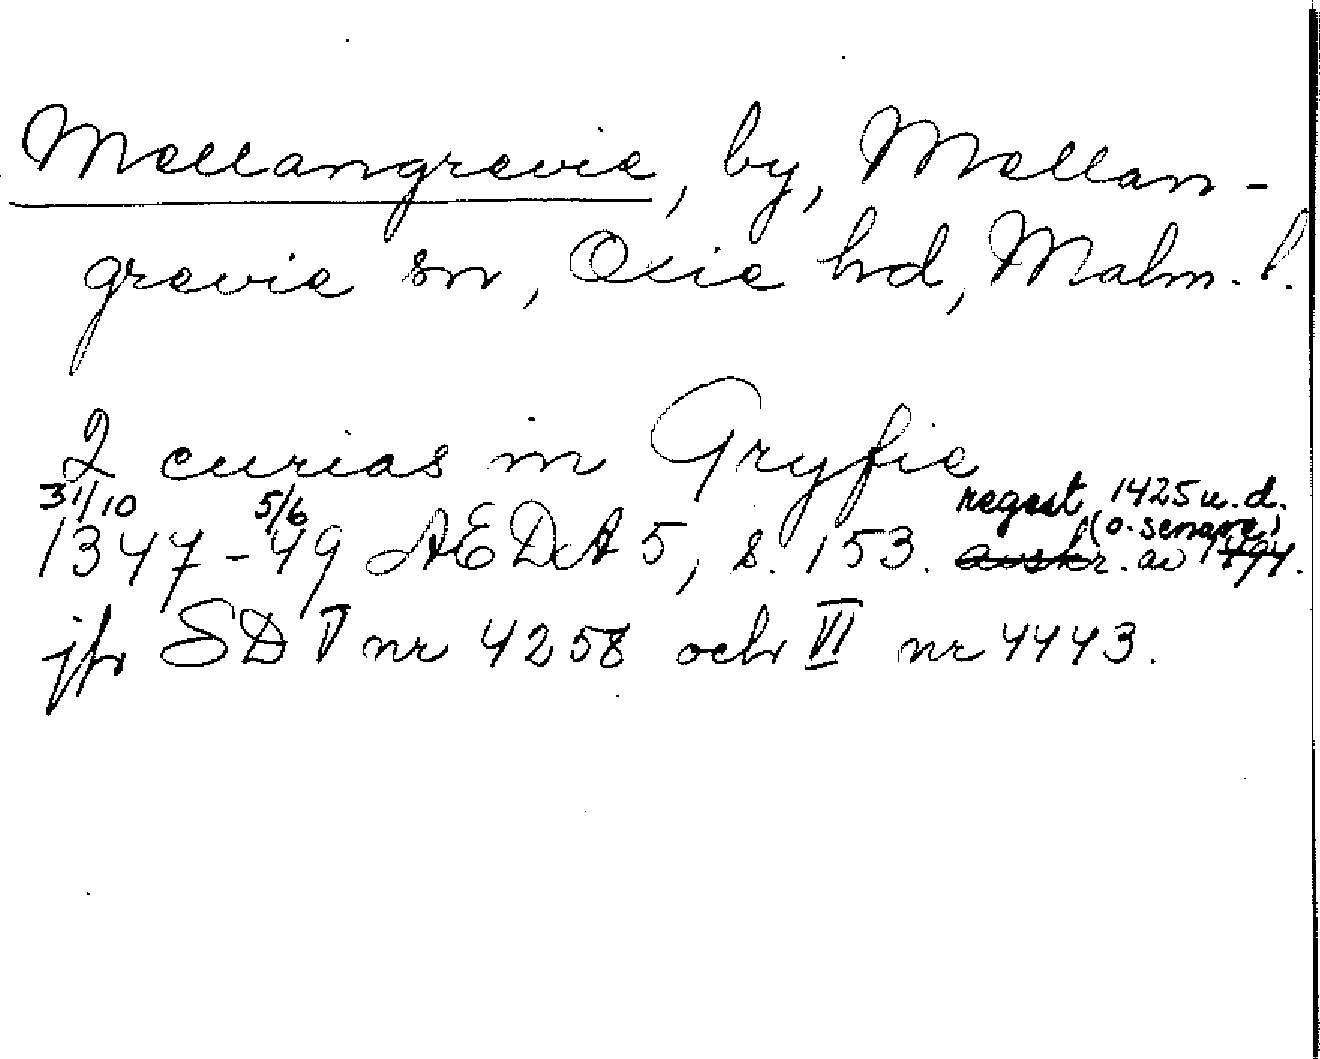 Mellangrevie, by, Mellan-
grevie sn, Oxie hd, Malm. l.
2 curias in Gryfie
31/10 5/6 regest, 1425 u. d.
(o. senare)
1347-49 AEDA 5, s. 153. avskr. av 1494.
jfr SD V nr 4258 och VI nr 4443.